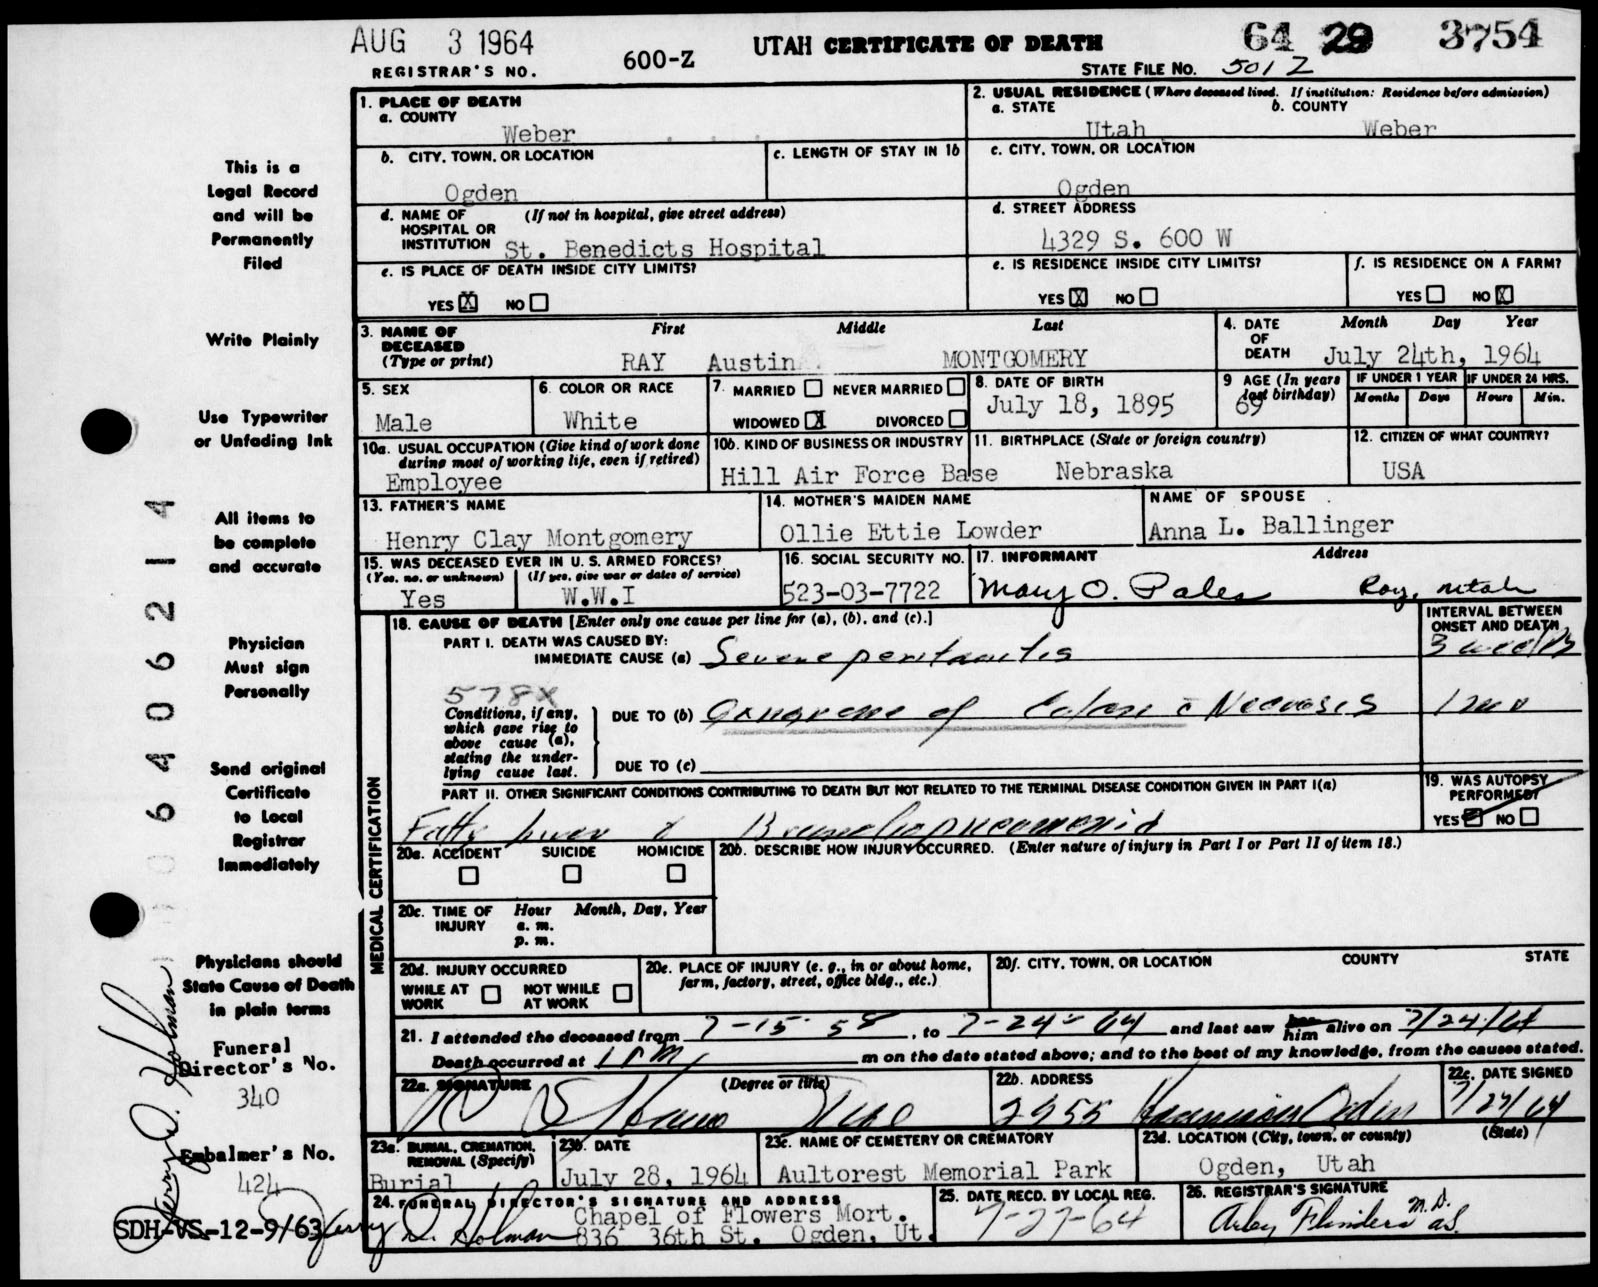 AUG 3 1964
REGISTRAR'S NO.
600-Z
UTAH CERTIFICATE OF DEATH
64 29 3754
STATE FILE NO. 501 Z
This is a
Legal Record
and will be
Permanently
Filed
Write Plainly
Use Typewriter
or Unfading Ink
All items to
be complete
and accurate
Physician
Must sign
Personally
Send original
Certificate
to Local
Registrar
Immediately
Physicians should
State Cause of Death
in plain terms
Funeral
Director's No.
340
Embalmer's No.
424
SDH-VS-12-9/63
6406214
Jerry D. Holman
1. PLACE OF DEATH
a. COUNTY
Weber
2. USUAL RESIDENCE (Where deceased lived. If institution: Residence before admission)
a. STATE b. COUNTY
Utah Weber
b. CITY, TOWN, OR LOCATION
Ogden
c. LENGTH OF STAY IN 1b
c. CITY, TOWN, OR LOCATION
Ogden
d. NAME OF (If not in hospital, give street address)
HOSPITAL OR
INSTITUTION St. Benedicts Hospital
d. STREET ADDRESS
4329 S. 600 W
e. IS PLACE OF DEATH INSIDE CITY LIMITS?
YES X NO
e. IS RESIDENCE INSIDE CITY LIMITS?
YES X NO
f. IS RESIDENCE ON A FARM?
YES NO X
3. NAME OF First Middle Last
DECEASED
(Type or print) RAY Austin MONTGOMERY
4. DATE Month Day Year
OF
DEATH July 24th, 1964
5. SEX
Male
6. COLOR OR RACE
White
7. MARRIED NEVER MARRIED
WIDOWED X DIVORCED
8. DATE OF BIRTH
July 18, 1895
9 AGE (In years
last birthday)
69
IF UNDER 1 YEAR IF UNDER 24 HRS.
Months Days Hours Min.
10a. USUAL OCCUPATION (Give kind of work done
during most of working life, even if retired)
Employee
10b. KIND OF BUSINESS OR INDUSTRY
Hill Air Force Base
11. BIRTHPLACE (State or foreign country)
Nebraska
12. CITIZEN OF WHAT COUNTRY?
USA
13. FATHER'S NAME
Henry Clay Montgomery
14. MOTHER'S MAIDEN NAME
Ollie Ettie Lowder
NAME OF SPOUSE
Anna L. Ballinger
15. WAS DECEASED EVER IN U. S. ARMED FORCES?
(Yes, no, or unknown) (If yes, give war or dates of service)
Yes W.W.I
16. SOCIAL SECURITY NO.
523-03-7722
17. INFORMANT Address
Mary O. Roy, Utah
MEDICAL CERTIFICATION
18. CAUSE OF DEATH [Enter only one cause per line for (a), (b), and (c).]
INTERVAL BETWEEN
ONSET AND DEATH
PART I. DEATH WAS CAUSED BY:
IMMEDIATE CAUSE (a) Severe peritonitis 3 weeks
578X
Conditions, if any,
which gave rise to
above cause (a),
stating the under-
lying cause last.
DUE TO (b) Gangrene of Colon c̄ Necrosis 1 mo
DUE TO (c)
PART II. OTHER SIGNIFICANT CONDITIONS CONTRIBUTING TO DEATH BUT NOT RELATED TO THE TERMINAL DISEASE CONDITION GIVEN IN PART I(a)
Fatty liver & Bronchopneumonia
19. WAS AUTOPSY
PERFORMED?
YES NO
20a. ACCIDENT SUICIDE HOMICIDE
20b. DESCRIBE HOW INJURY OCCURRED. (Enter nature of injury in Part I or Part II of item 18.)
20c. TIME OF Hour Month, Day, Year
INJURY a. m.
p. m.
20d. INJURY OCCURRED
WHILE AT NOT WHILE
WORK AT WORK
20e. PLACE OF INJURY (e. g., in or about home,
farm, factory, street, office bldg., etc.)
20f. CITY, TOWN, OR LOCATION COUNTY STATE
21. I attended the deceased from 7-15-58, to 7-24-64 and last saw her him alive on 7/24/64
Death occurred at 1 PM m on the date stated above; and to the best of my knowledge, from the causes stated.
22a. SIGNATURE (Degree or title)
22b. ADDRESS
2955 Harrison Ogden
22c. DATE SIGNED
7/27/64
23a. BURIAL, CREMATION,
REMOVAL (Specify)
Burial
23b. DATE
July 28, 1964
23c. NAME OF CEMETERY OR CREMATORY
Aultorest Memorial Park
23d. LOCATION (City, town, or county) (State)
Ogden, Utah
24. FUNERAL DIRECTOR'S SIGNATURE AND ADDRESS
Jerry D. Holman
Chapel of Flowers Mort.
836 36th St. Ogden, Ut.
25. DATE RECD. BY LOCAL REG.
7-27-64
26. REGISTRAR'S SIGNATURE
Flinders M.D.